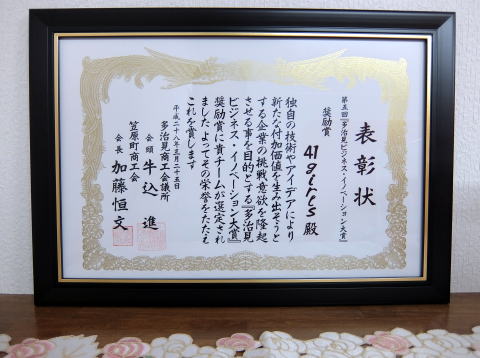 表彰状
第五回『多治見ビジネス・イノベーション大賞』
奨励賞
41girls 殿
独自の技術やアイデアにより
新たな付加価値を生み出そうと
する企業の挑戦意欲を隆起
させる事を目的とする『多治見
ビジネス・イノベーション大賞』
奨励賞に貴チームが選定され
ました よってその栄誉をたたえ
これを賞します
平成二十八年三月二十五日
多治見商工会議所
会頭 牛込 進
笠原町商工会
会長 加藤 恒文